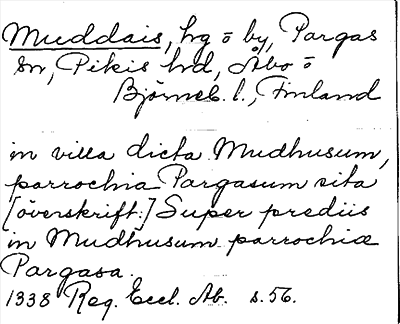 Muddais, hg o by, Pargas
sn, Pikis hd, Åbo o
Björneb. l., Finland
in villa dicta Mudhusum,
parrochia Pargasum sita
[överskrift:] Super prediis
in Mudhusum parrochiæ
Pargasa.
1338 Reg. Eccl. Ab. s. 56.